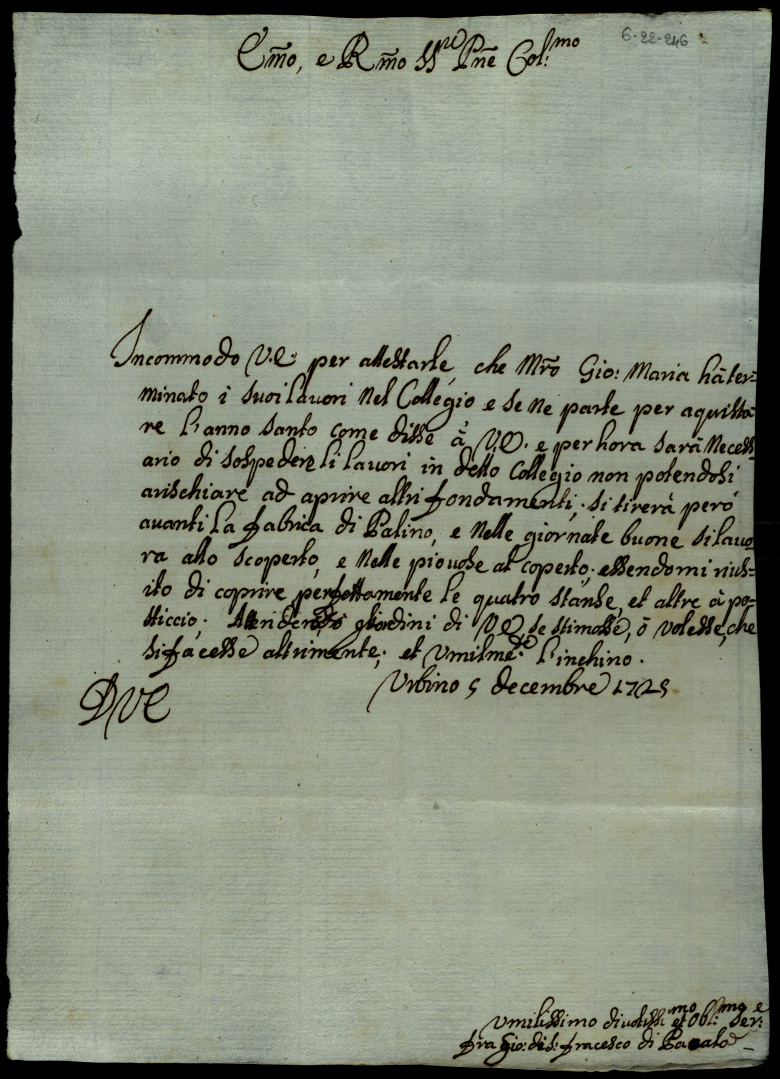 6-22-246
Em̃o, e Rm̃o SSre Pñe Col:mo
Incommodo V.E: per attestarle, che Mr̃o Gio: Maria hà ter=
minato i suoi lavori nel Collegio e se ne parte per aquista=
re l'anno santo come disse à V.E. e per hora sarà necess=
ario di sospedere li lavori in detto Collegio non potendosi
arischiare ad aprire altri fondamenti; si tirerà però
avanti la fabrica di Palino, e nelle giornate buone si lavo=
ra allo scoperto, e nelle piovose al coperto, essendomi rius=
ito di coprire perfettamente le quatro stanse, et altre à po=
sticcio. Attendendo gl'ordini di V.E. se stimasse, ò volesse, che
si facesse altrimente; et vmilme:te l'inchino.
Vrbino 5 decembre 1725
DVE
Vmilissimo divotissi:mo et Obl:mo Ser:e
fra Gio: di S: fracesco di